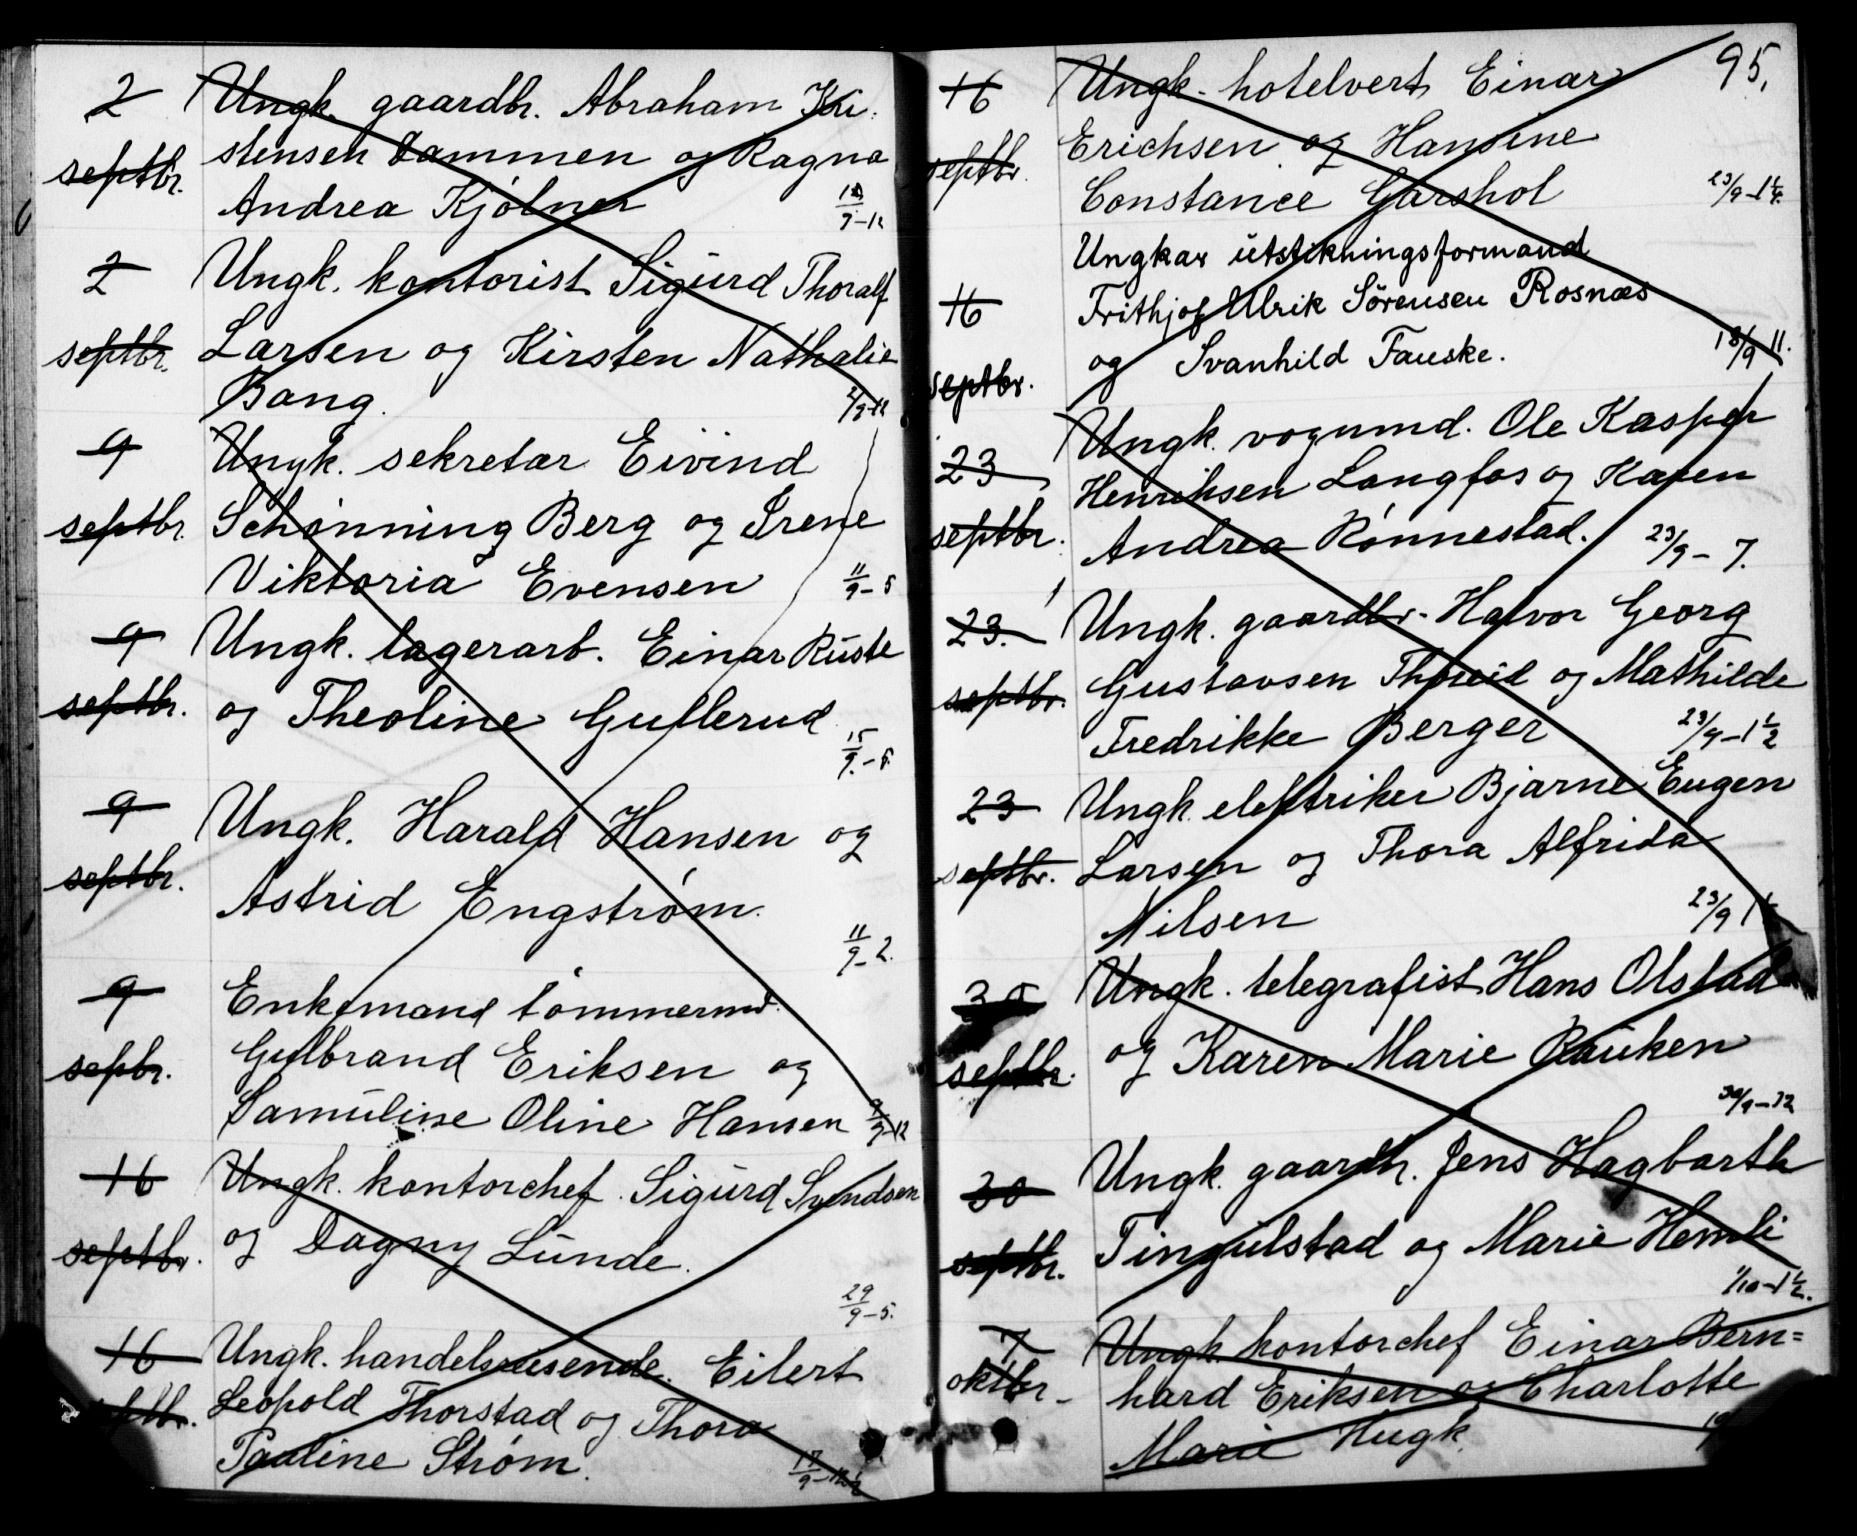 2 Ungk. gaardbr. Abraham Kri-
septbr. stensen Dammen og Ragna
Andrea Kjølner 9-12
2 Ungk. kontorist Sigurd Thoralf
septbr. Larsen og Kirsten Nathalie
Bang. 2/9-12
9 Ungk. sekretær Eivind
septbr. Schønning Berg og Irene
Viktoria Evensen 11/9-5
9 Ungk. lagerarb. Einar Ruste
septbr. og Theoline Gullerud
15/9-5
9 Ungk. Harald Hansen og
septbr. Astrid Engstrøm.
11/9-2.
9 Enkemand tømmermd.
sepbr. Gulbrand Eriksen og
Samuline Oline Hansen 9/9-12
16 Ungk. kontorchef Sigurd Svendsen
septbr. og Dagny Lunde.
29/9-5.
16 Ungk. handelsreisende Eilert
septbr. Leopold Thorstad og Thora
Pauline Strøm. 17/9-12½
95.
16 Ungk. hotelvert Einar
septbr. Erichsen og Hansine
Constance Garshol 23/9-1¼.
Ungkar utstikningsformand
16 Frithjof Ulrik Sørensen Rosnæs
septbr. og Svanhild Fauske. 18/9 11.
23 Ungk. vognmd. Ole Kasper
septbr. Henriksen Langfos og Karen
Andrea Rønnestad. 23/9-7.
23. Ungk. gaardbr. Halvor Georg
septbr. Gustavsen og Mathilde
Fredrikke Berger 23/9-1½
23 Ungk. elektriker Bjarne Eugen
septbr. Larsen og Thora Alfrida
Nilsen 23/9
30 Ungk. telegrafist Hans Olstad
septbr. og Karen Marie Bauken
30/9-12
30 Ungk. gaardbr. Jens Hagbarth
septbr. Tingulstad og Marie Hemli
1/10-1½.
7 Ungk. kontorchef Einar Bern=
oktbr. hard Eriksen og Charlotte
Marie Hugk.